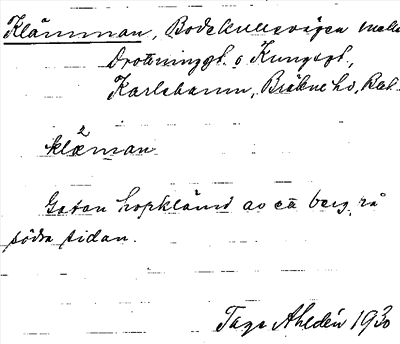 Klämman, Bodekullsvägen mella
Drottninggt. o Kungsgt.,
Karlshamn, Bräkne hd, Bl
klæ²man
Gatan hopklämd av en berg, på
södra sidan.
Tage Ahldén 1930